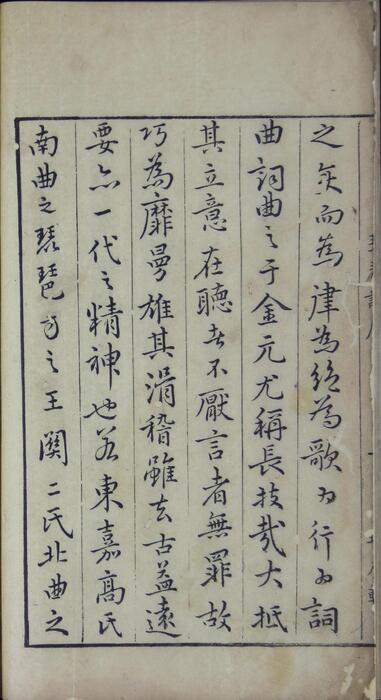 之矣而為律為絕為歌為行為詞
曲詞曲之于金元尤稱長技哉大抵
其立意在聽者不厭言者無罪故
巧為靡曼雄其滑稽雖去古益遠
要亦一代之精神也若東嘉高氏
南曲之琵琶方之王關二氏北曲之